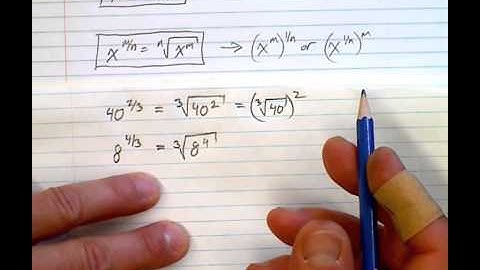 x^{m/n} = ⁿ√(x^m) → (x^m)^{1/n} or (x^{1/n})^m
40^{2/3} = ³√(40²) = (³√40)²
8^{4/3} = ³√(8⁴)